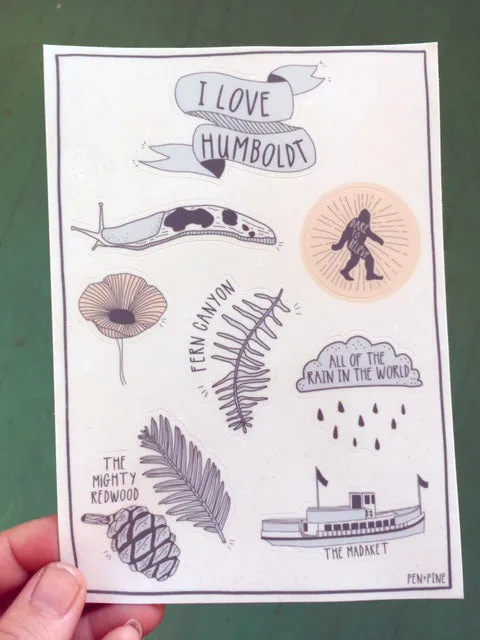 I LOVE
HUMBOLDT
DARE
TO
BELIEVE
FERN CANYON
ALL OF THE
RAIN IN THE WORLD
THE
MIGHTY
REDWOOD
THE MADAKET
PEN+PINE